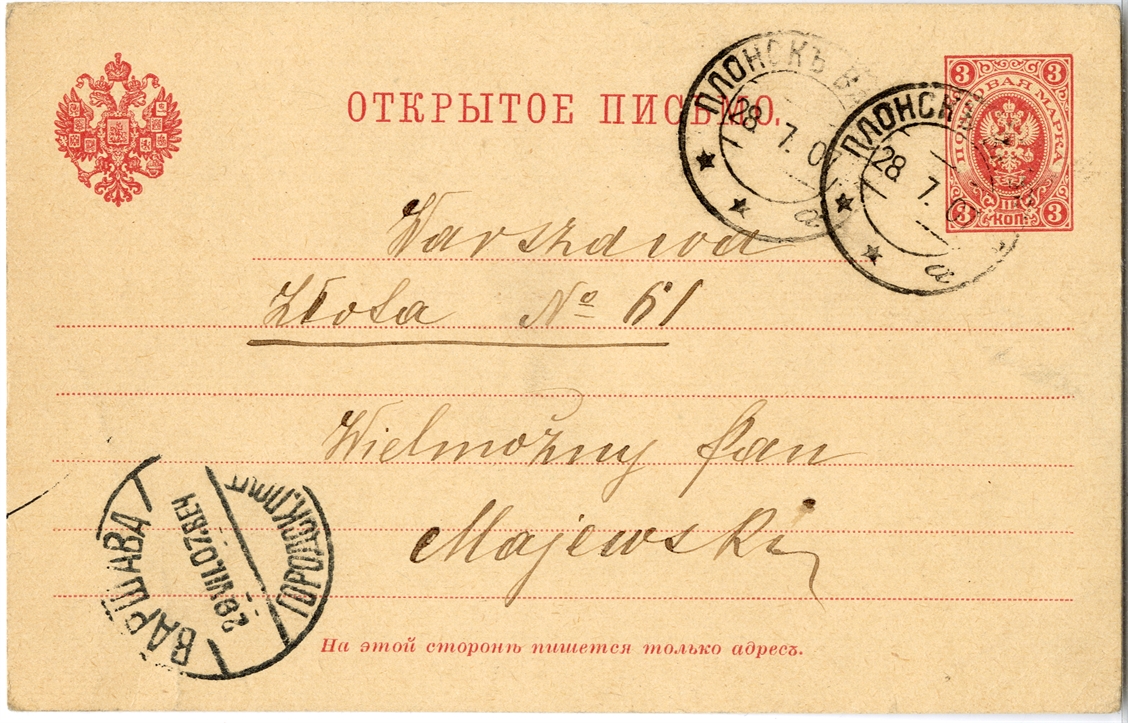 ОТКРЫТОЕ ПИСЬМО.
ПЛОНСКЪ ВА
28 7. 07
а
ПЛОНСК
28 7. 07
а
3 3
ПОЧТОВАЯ МАРКА
3 КОП. 3
Warszawa
Złota № 61
Wielmożny Pan
Majewski
ВАРШАВА
28 VII.07.8ВЕЧ
ГОРОДСК.
На этой сторонѣ пишется только адресъ.